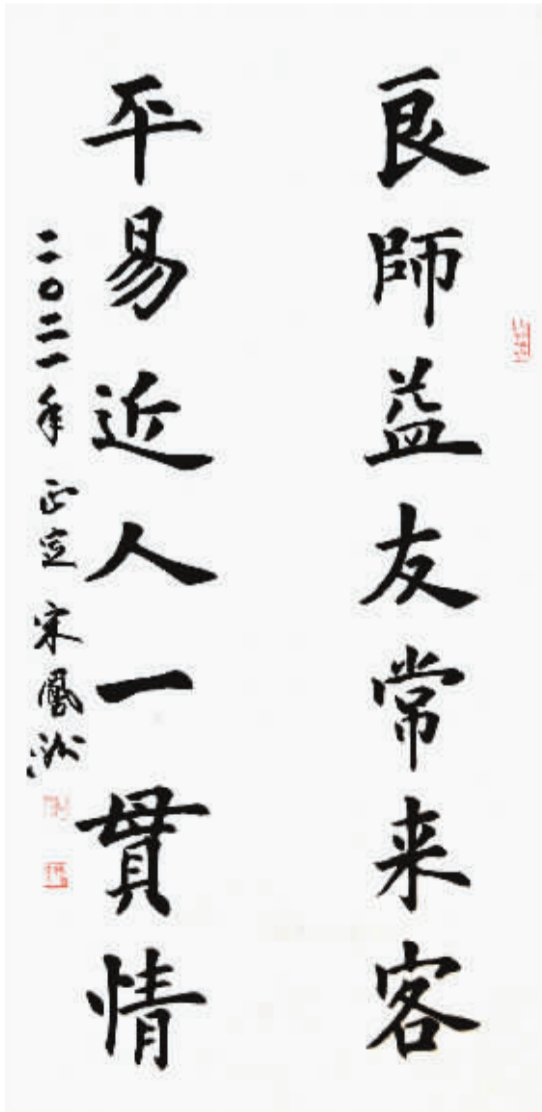 良師益友常来客
平易近人一貫情
二〇二一年 正定 宋鳳洲